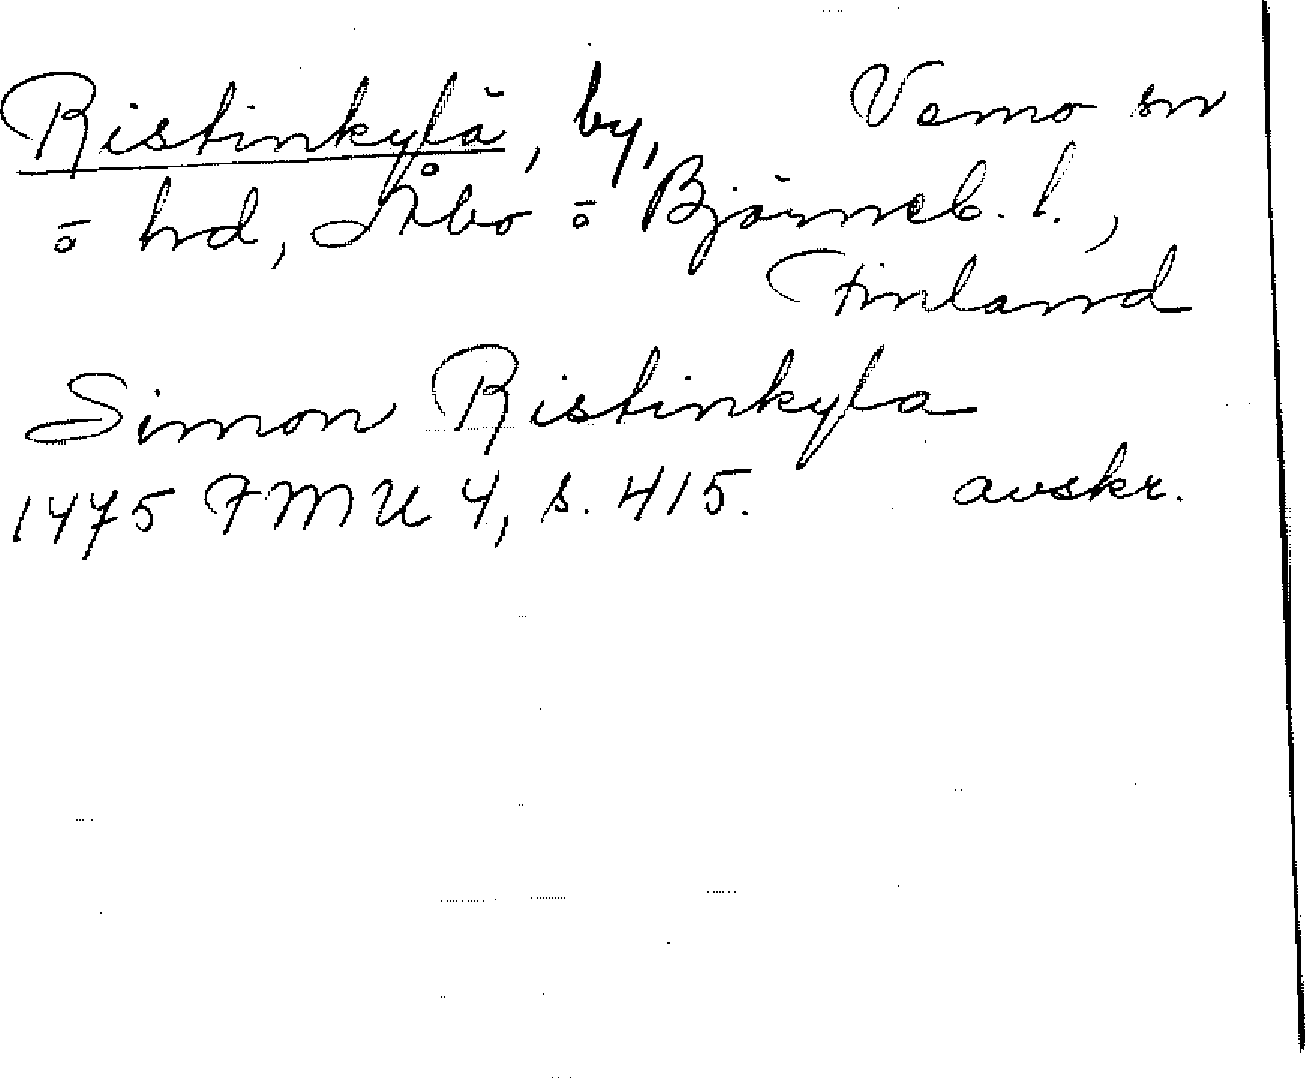 Ristinkylä, by, Vemo sn
o hd, Åbo o Björneb. l.,
Finland
Simon Ristinkyla
1475 FMU 4, s. 415. avskr.